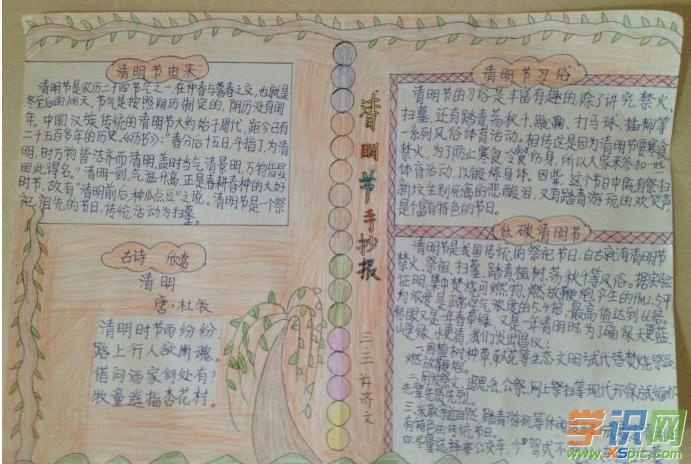 清明节由来
清明节是农历二十四节气之一,在仲春与暮春之交,也就是
冬至后的108天。节气是按照阴历制定的,阴历没有闰
年。中国汉族传统的清明节大约始于周代,距今已有
二千五百多年的历史。《历书》:"春分后十五日,斗指丁,为清
明,时万物皆洁齐而清明,盖时当气清景明,万物皆显,
因此得名。"清明一到,气温升高,正是春耕春种的大好
时节,故有"清明前后,种瓜点豆"之说。清明节是一个祭
祀祖先的节日,传统活动为扫墓。
古诗 欣赏
清明
唐·杜牧
清明时节雨纷纷
路上行人欲断魂。
借问酒家何处有?
牧童遥指杏花村。
清明节手抄报
三.三 许济文
清明节习俗
清明节的习俗是丰富有趣的,除了讲究禁火、
扫墓,还有踏青、荡秋千、蹴鞠、打马球、插柳等
一系列风俗体育活动。相传这是因为清明节要寒食
禁火,为了防止寒食冷餐伤身,所以大家来参加一些
体育活动,以锻炼身体。因此,这个节日中既有祭扫
新坟生别死离的悲酸泪,又有踏青游玩的欢笑声,
是个富有特色的节日。
低碳清明节
清明节是我国传统的祭祀节日,自古就有清明节
禁火、祭祖、扫墓、踏青植树、荡秋千等风俗。据实验
证明,集中焚烧可燃物、燃放鞭炮,产生的PM2.5平
均浓度是正常空气浓度的5.4倍,最高值达到6倍
山更绿、水更清,我们发出倡议:
一.用植树种草、献花等生态文明
燃放鞭炮。
网上祭扫等现代环保
先辈先贤先烈。
三.采取拥抱自然、踏青游玩等休
有特色的传统节日。
学识网
www.XSpic.com